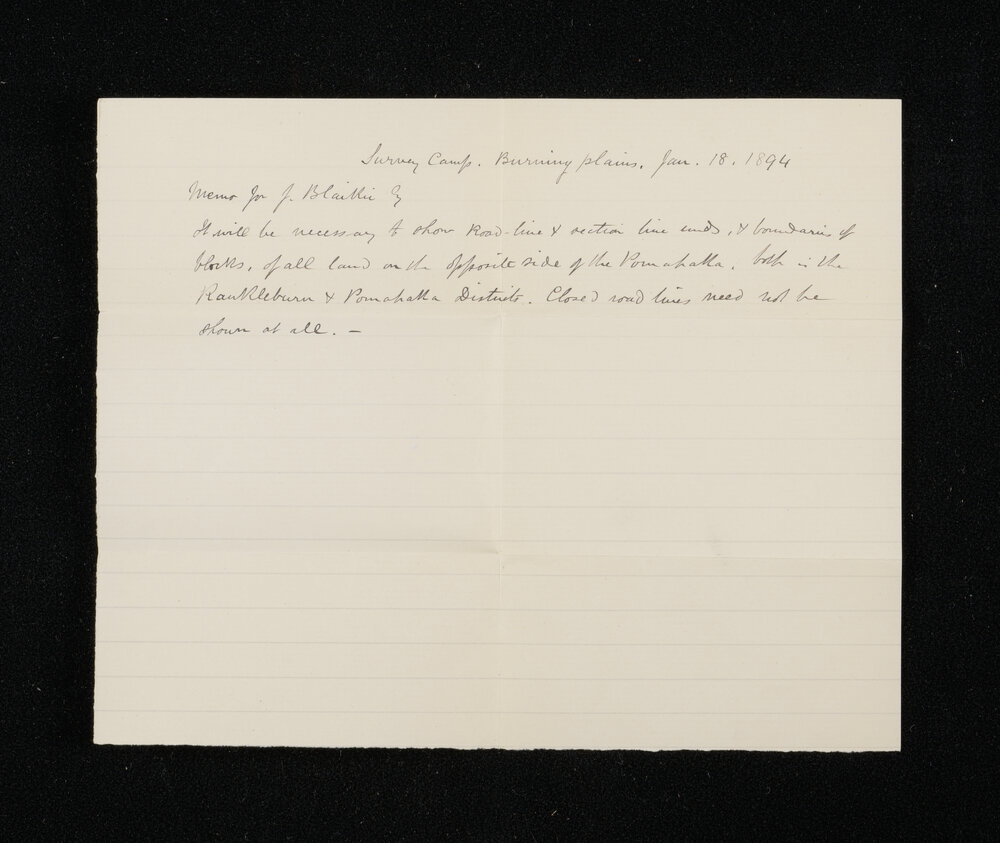 Survey Camp. Burning plains, Jan. 18. 1894
Memo for J. Blaikie Esq
It will be necessary to show Road-line & section line ends, & boundaries of
blocks, of all land on the opposite side of the Pomahaka, both in the
Rankleburn & Pomahaka Districts. Closed road lines need not be
shown at all. —